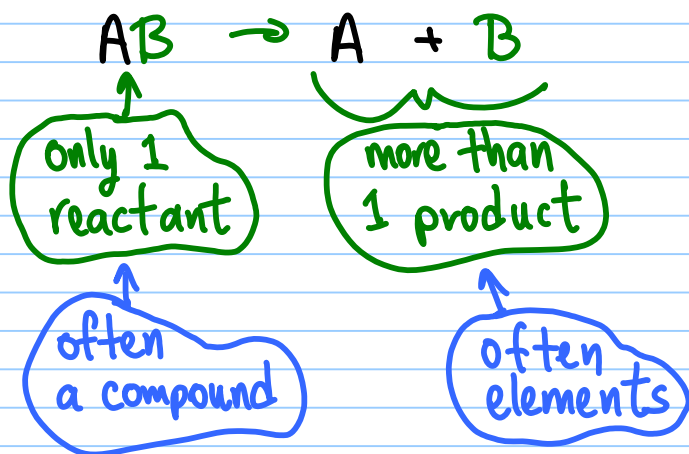 AB → A + B
only 1
reactant
more than
1 product
often
a compound
often
elements